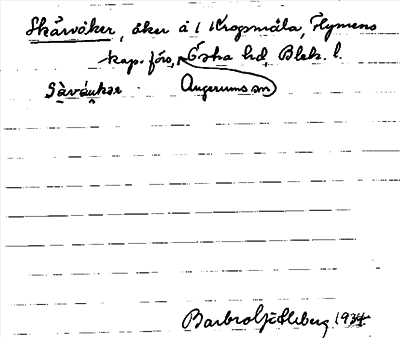 Skårvåker, åker å 1 Krogsmåla, Flymens
kap. förs, Östra hd, Blek. l.
Augerums sn
Barbro Hjelleberg. 1934